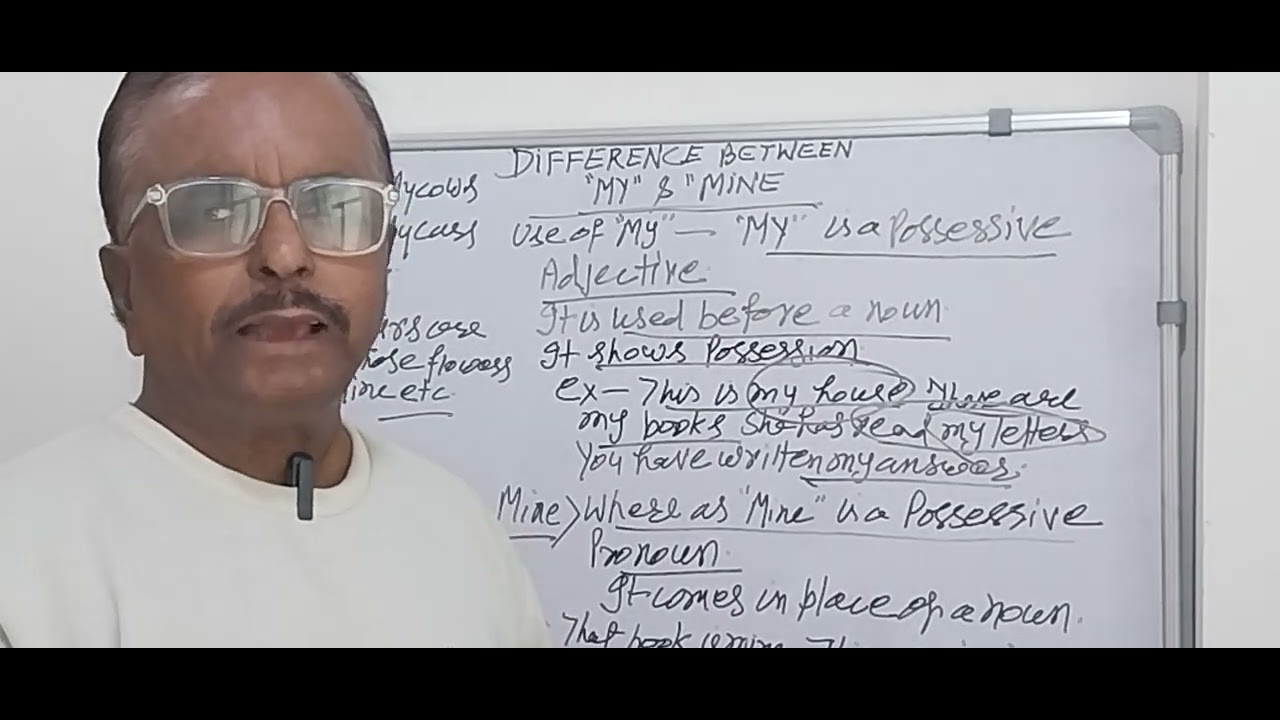 DIFFERENCE BETWEEN
"MY" & "MINE
Use of "My" — "MY" is a Possessive
Adjective.
It is used before a noun
It shows Possession
ex - This is my house These are
my books She has read my letters
You have written my answer.
Mine > Where as "Mine" is a Possessive
Pronoun.
It comes in place of a noun.
That book is mine This
My cows
My cars
flowers
etc